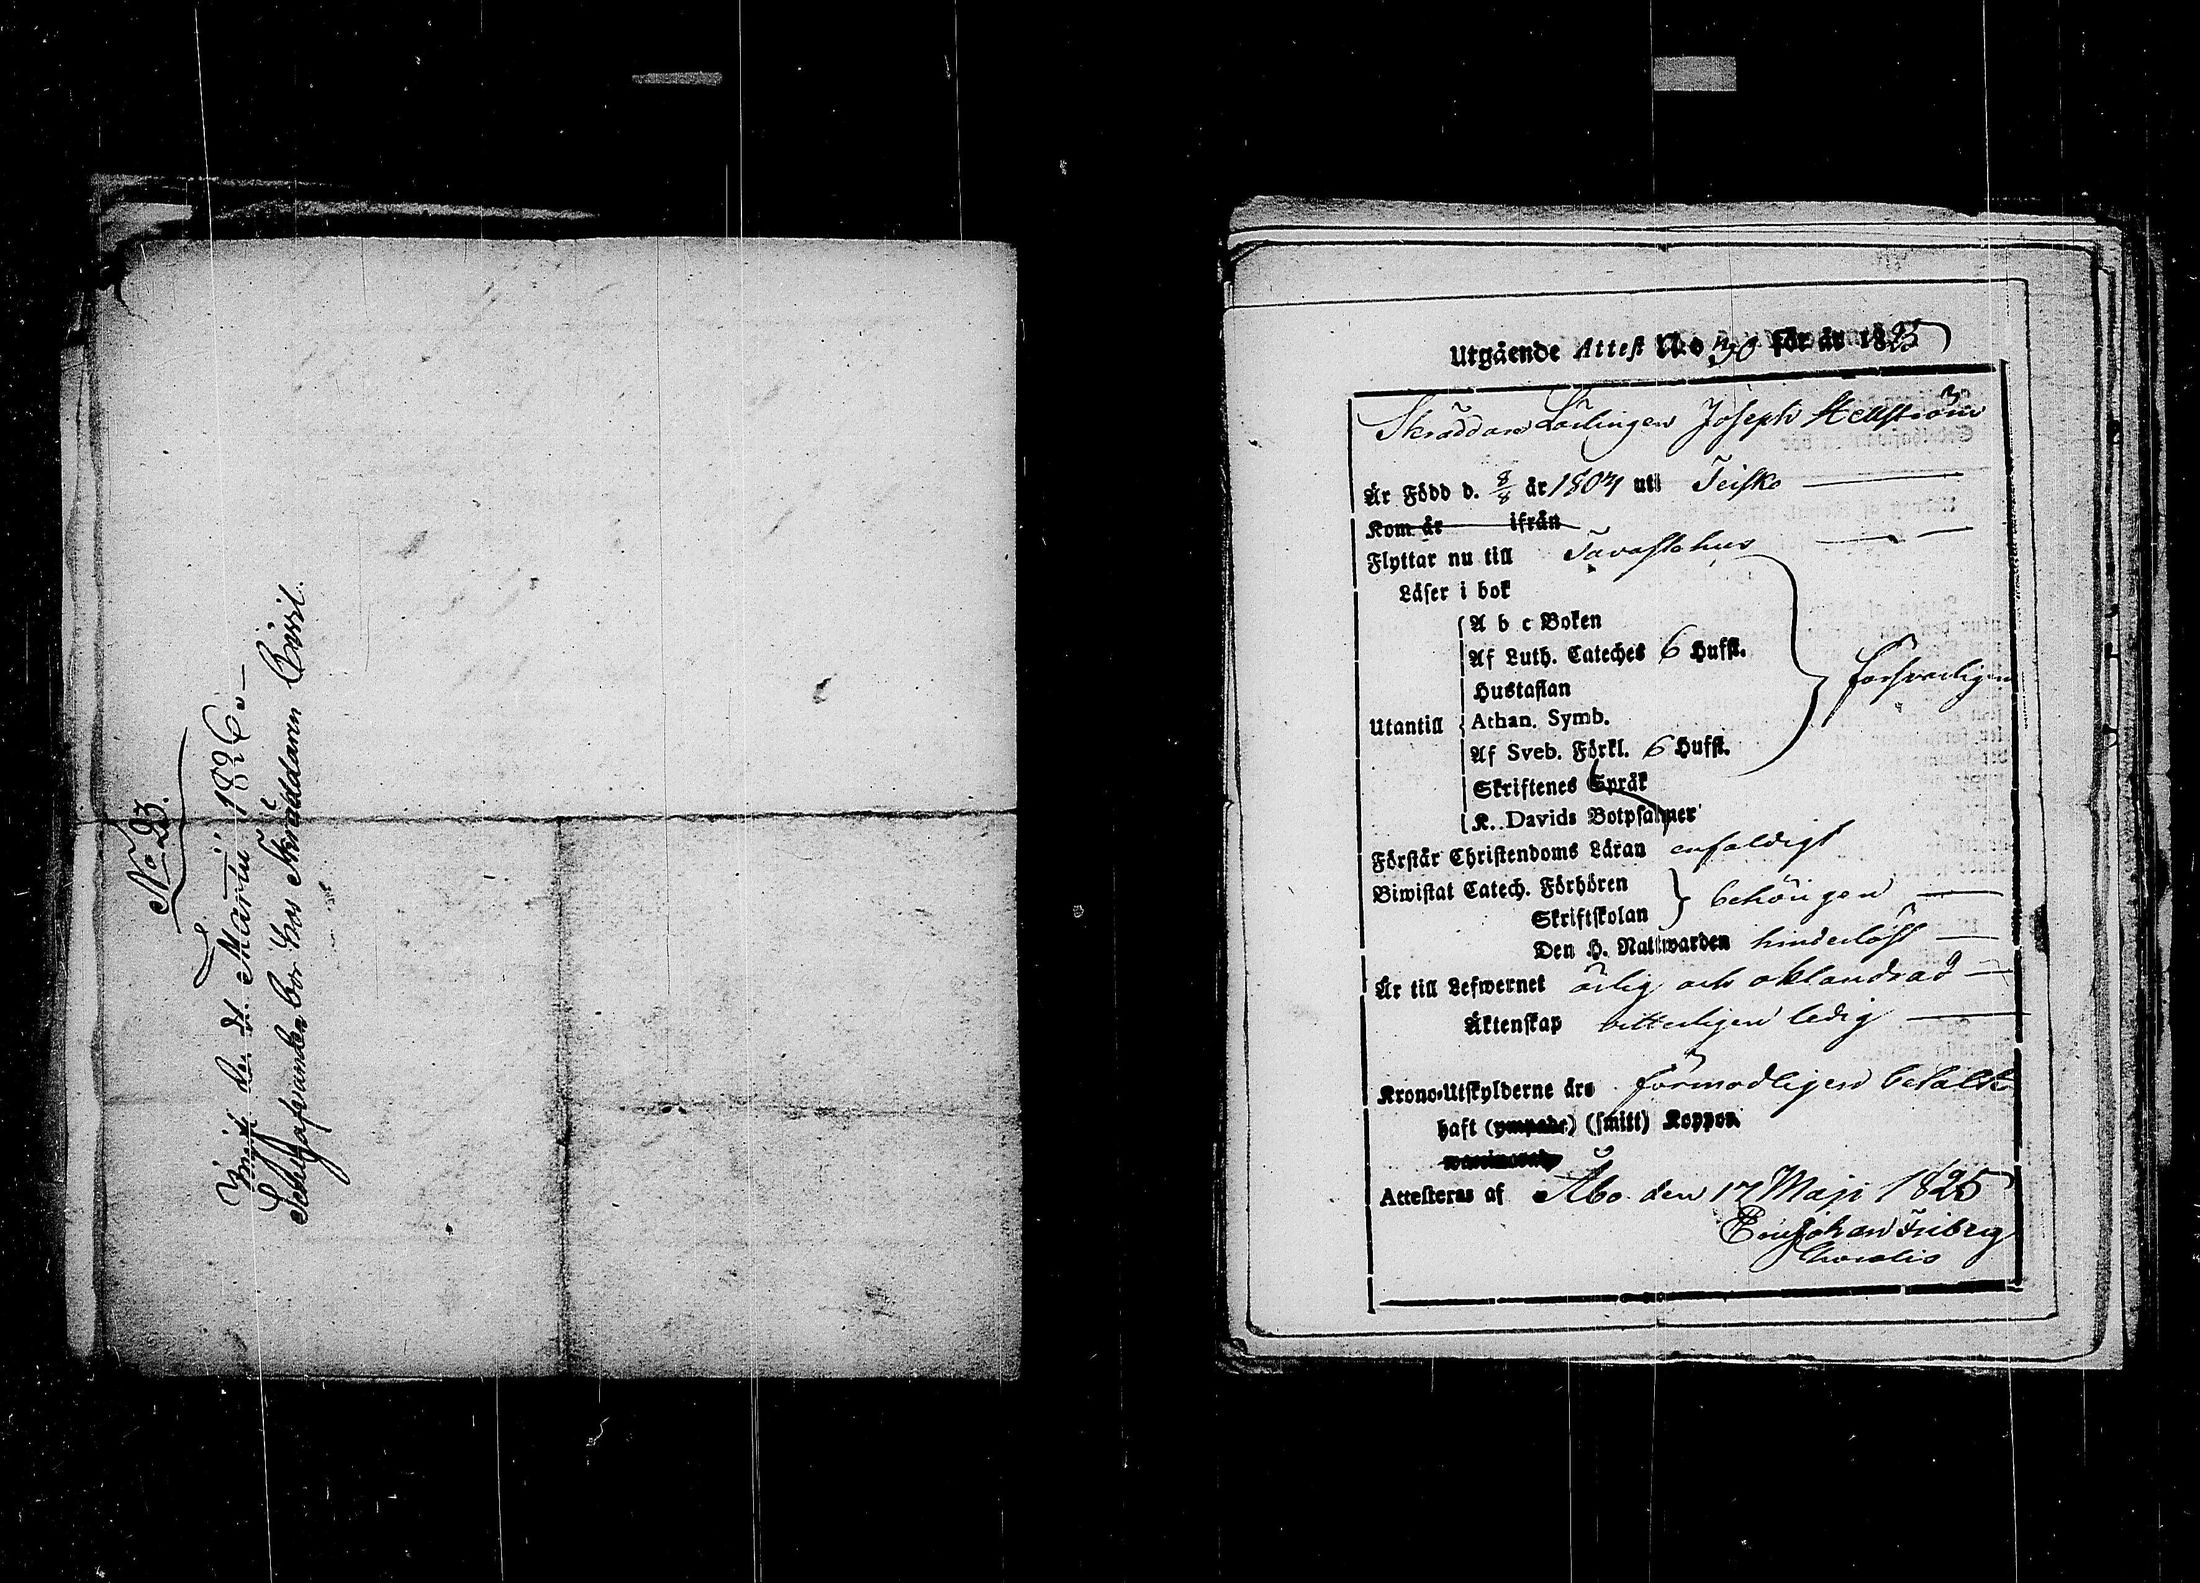 No 23.
Inl. den d. Martii 1826 –
bor hos Skräddaren
Utgående Attest No 30 för år 1825
Skräddare Lärlingen Joseph Hellström
Är Född d. 8/8 år 1804 uti Teisko
Kom år ifrån
Flyttar nu till Tavastehus
Läser i bok
A b c Boken
Af Luth. Cateches 6 Hufst.
Hustaflan
Utantill Athan. Symb.
Af Sveb. Förkl. 6 Hufst.
Skriftenes Språk
K. Davids Botpsalmer
försvarligen
Förstår Christendoms Läran enfaldigt
Biwistat Catech. Förhören
Skriftskolan
behörigen
Den H. Nattwarden hinderlöst
Är till Lefwernet ärlig och oklandrad
Äktenskap vitterligen ledig
Krono-Utskylderne äro förmodligen betalte
haft (ympade) (smitt) Koppor
Attesteras af Åbo den 17 Maji 1825
Eric Johan